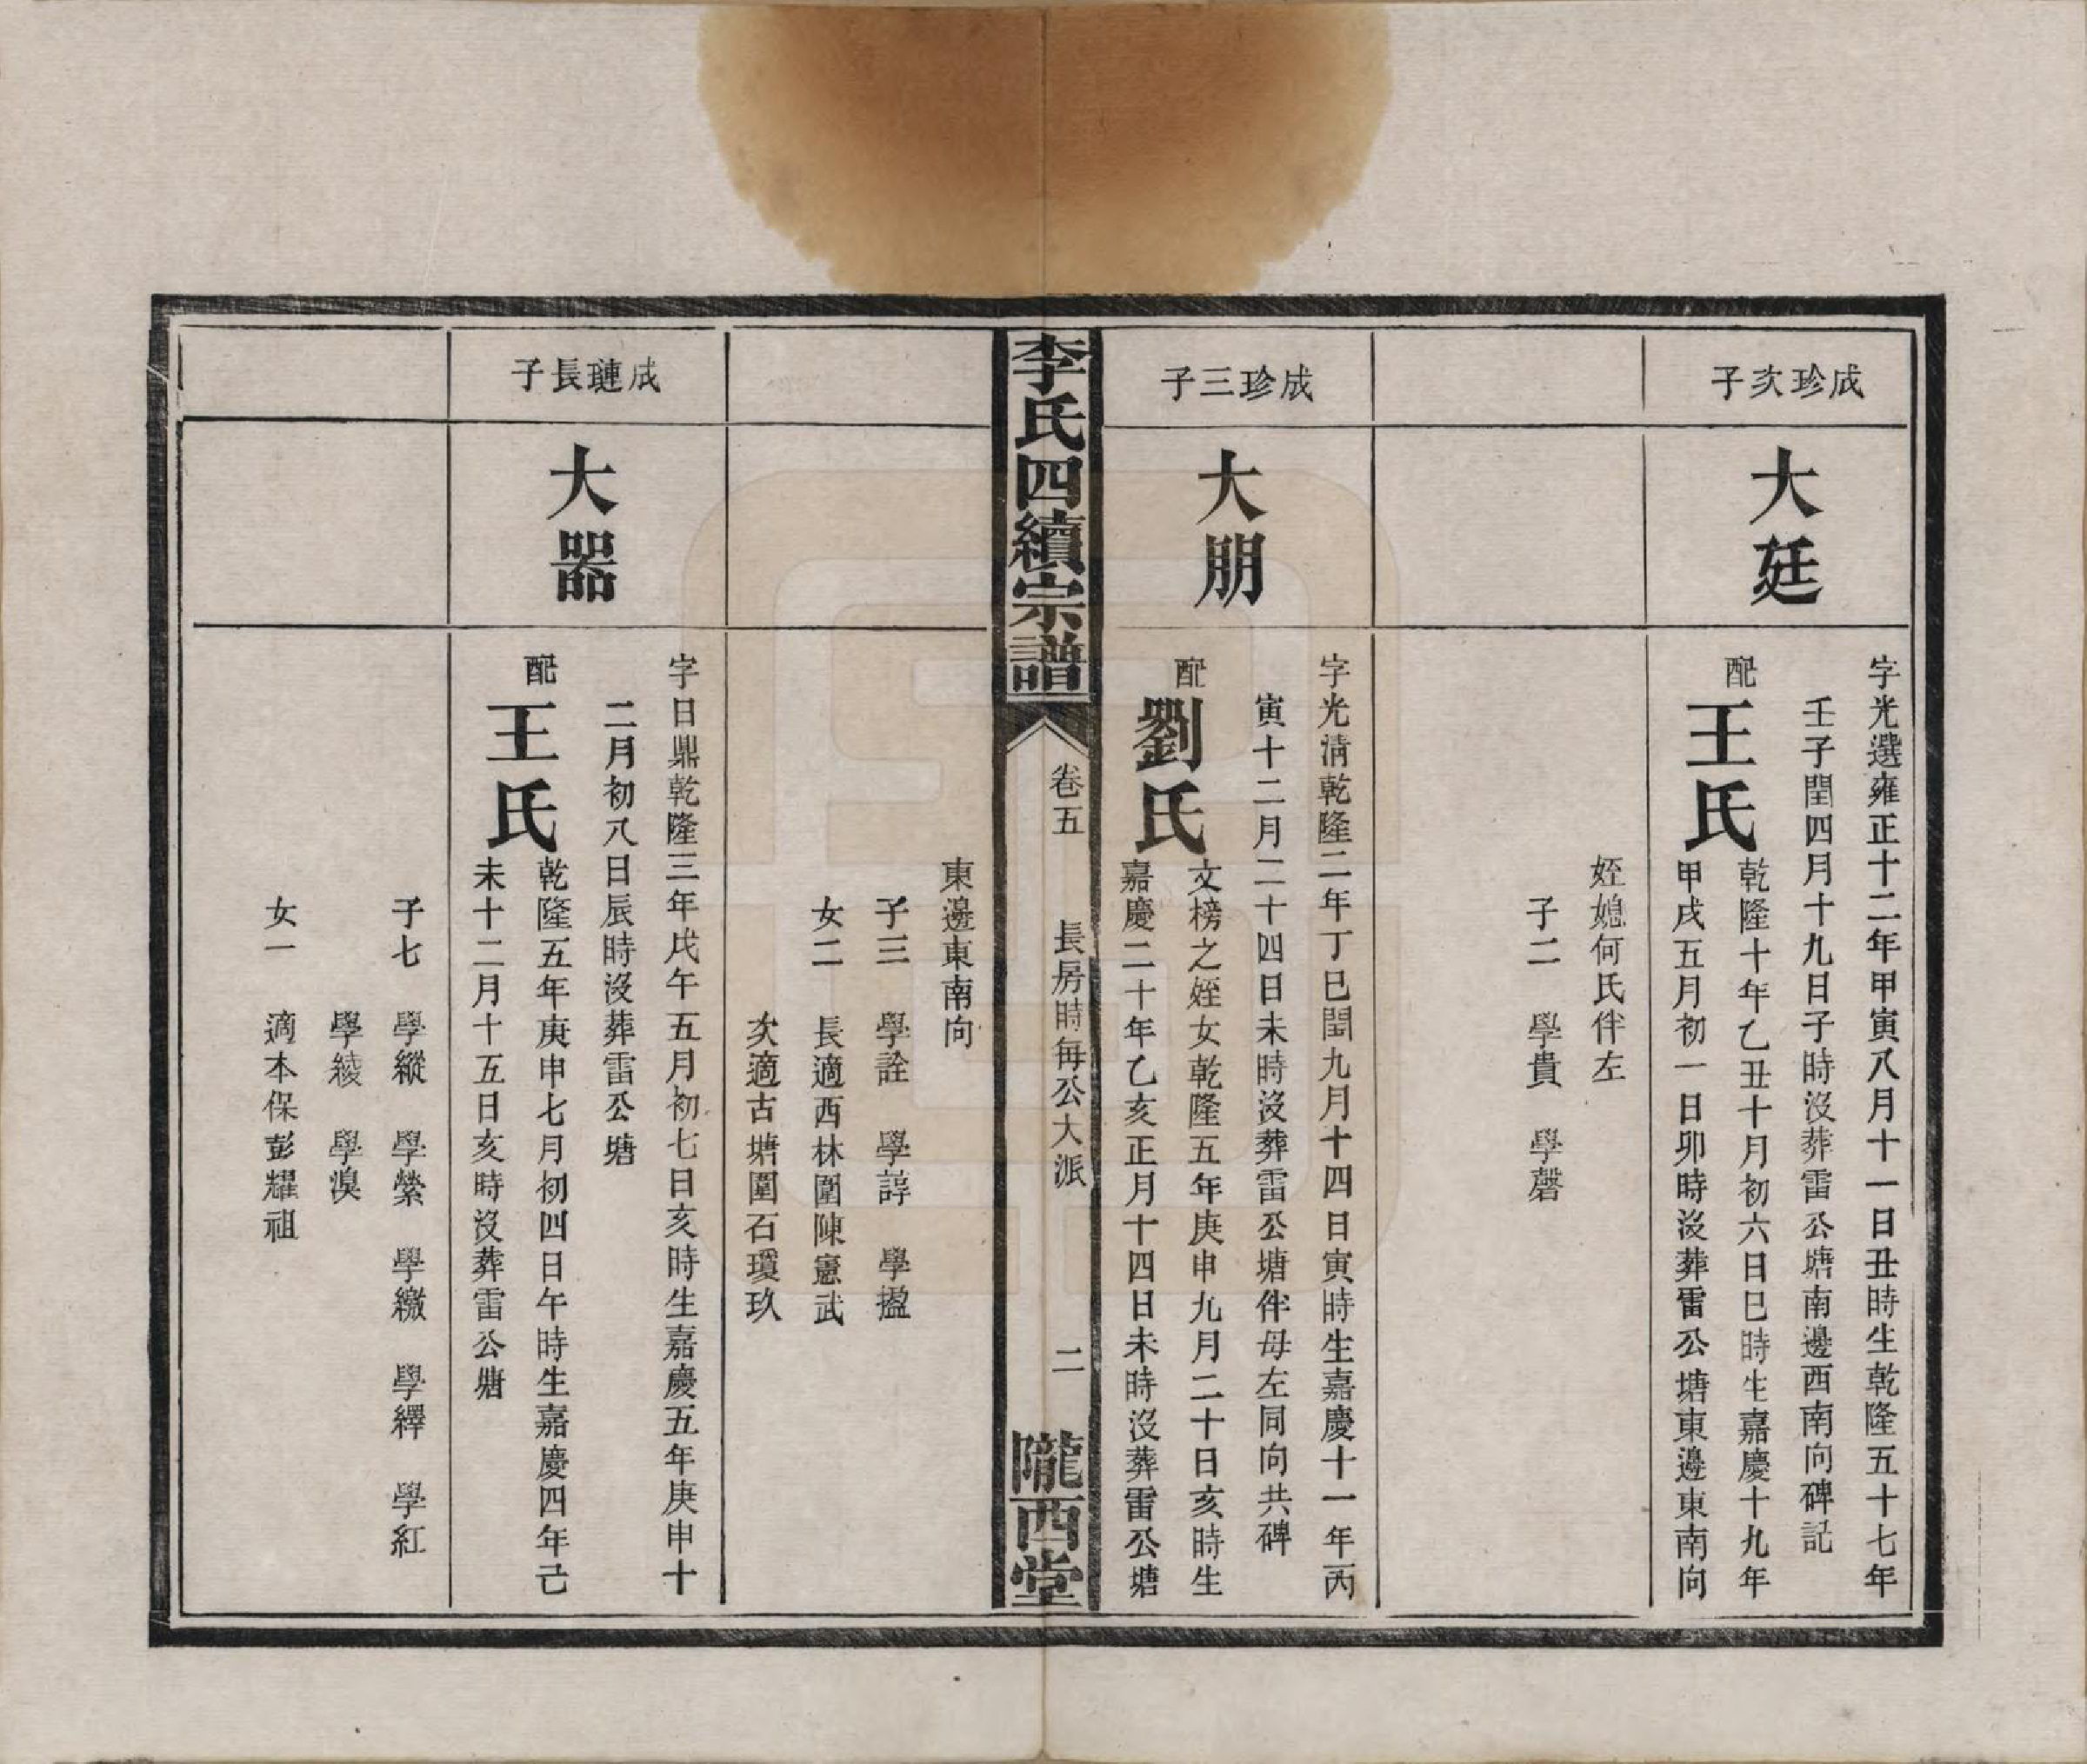 成珍次子
大廷
字光選雍正十二年甲寅八月十一日丑時生乾隆五十七年
壬子閏四月十九日子時沒葬雷公塘南邊西南向碑記
配王氏
乾隆十年乙丑十月初六日巳時生嘉慶十九年
甲戌五月初一日卯時沒葬雷公塘東邊東南向
姪媳何氏伴左
子二 學貴 學磬
成珍三子
大朋
字光清乾隆二年丁巳閏九月十四日寅時生嘉慶十一年丙
寅十二月二十四日未時沒葬雷公塘伴母左同向共碑
配劉氏
文榜之姪女乾隆五年庚申九月二十日亥時生
嘉慶二十年乙亥正月十四日未時沒葬雷公塘
李氏四續宗譜
卷五
長房時每公大派
二
隴西堂
東邊東南向
子三 學詮 學諄 學搵
女二 長適西林圍陳憲武
次適古塘圍石瓊玖
成璉長子
大器
字日鼎乾隆三年戊午五月初七日亥時生嘉慶五年庚申十
二月初八日辰時沒葬雷公塘
配王氏
乾隆五年庚申七月初四日午時生嘉慶四年己
未十二月十五日亥時沒葬雷公塘
子七 學縱 學縈 學繳 學繹 學紅
學綾 學溴
女一 適本保彭耀祖